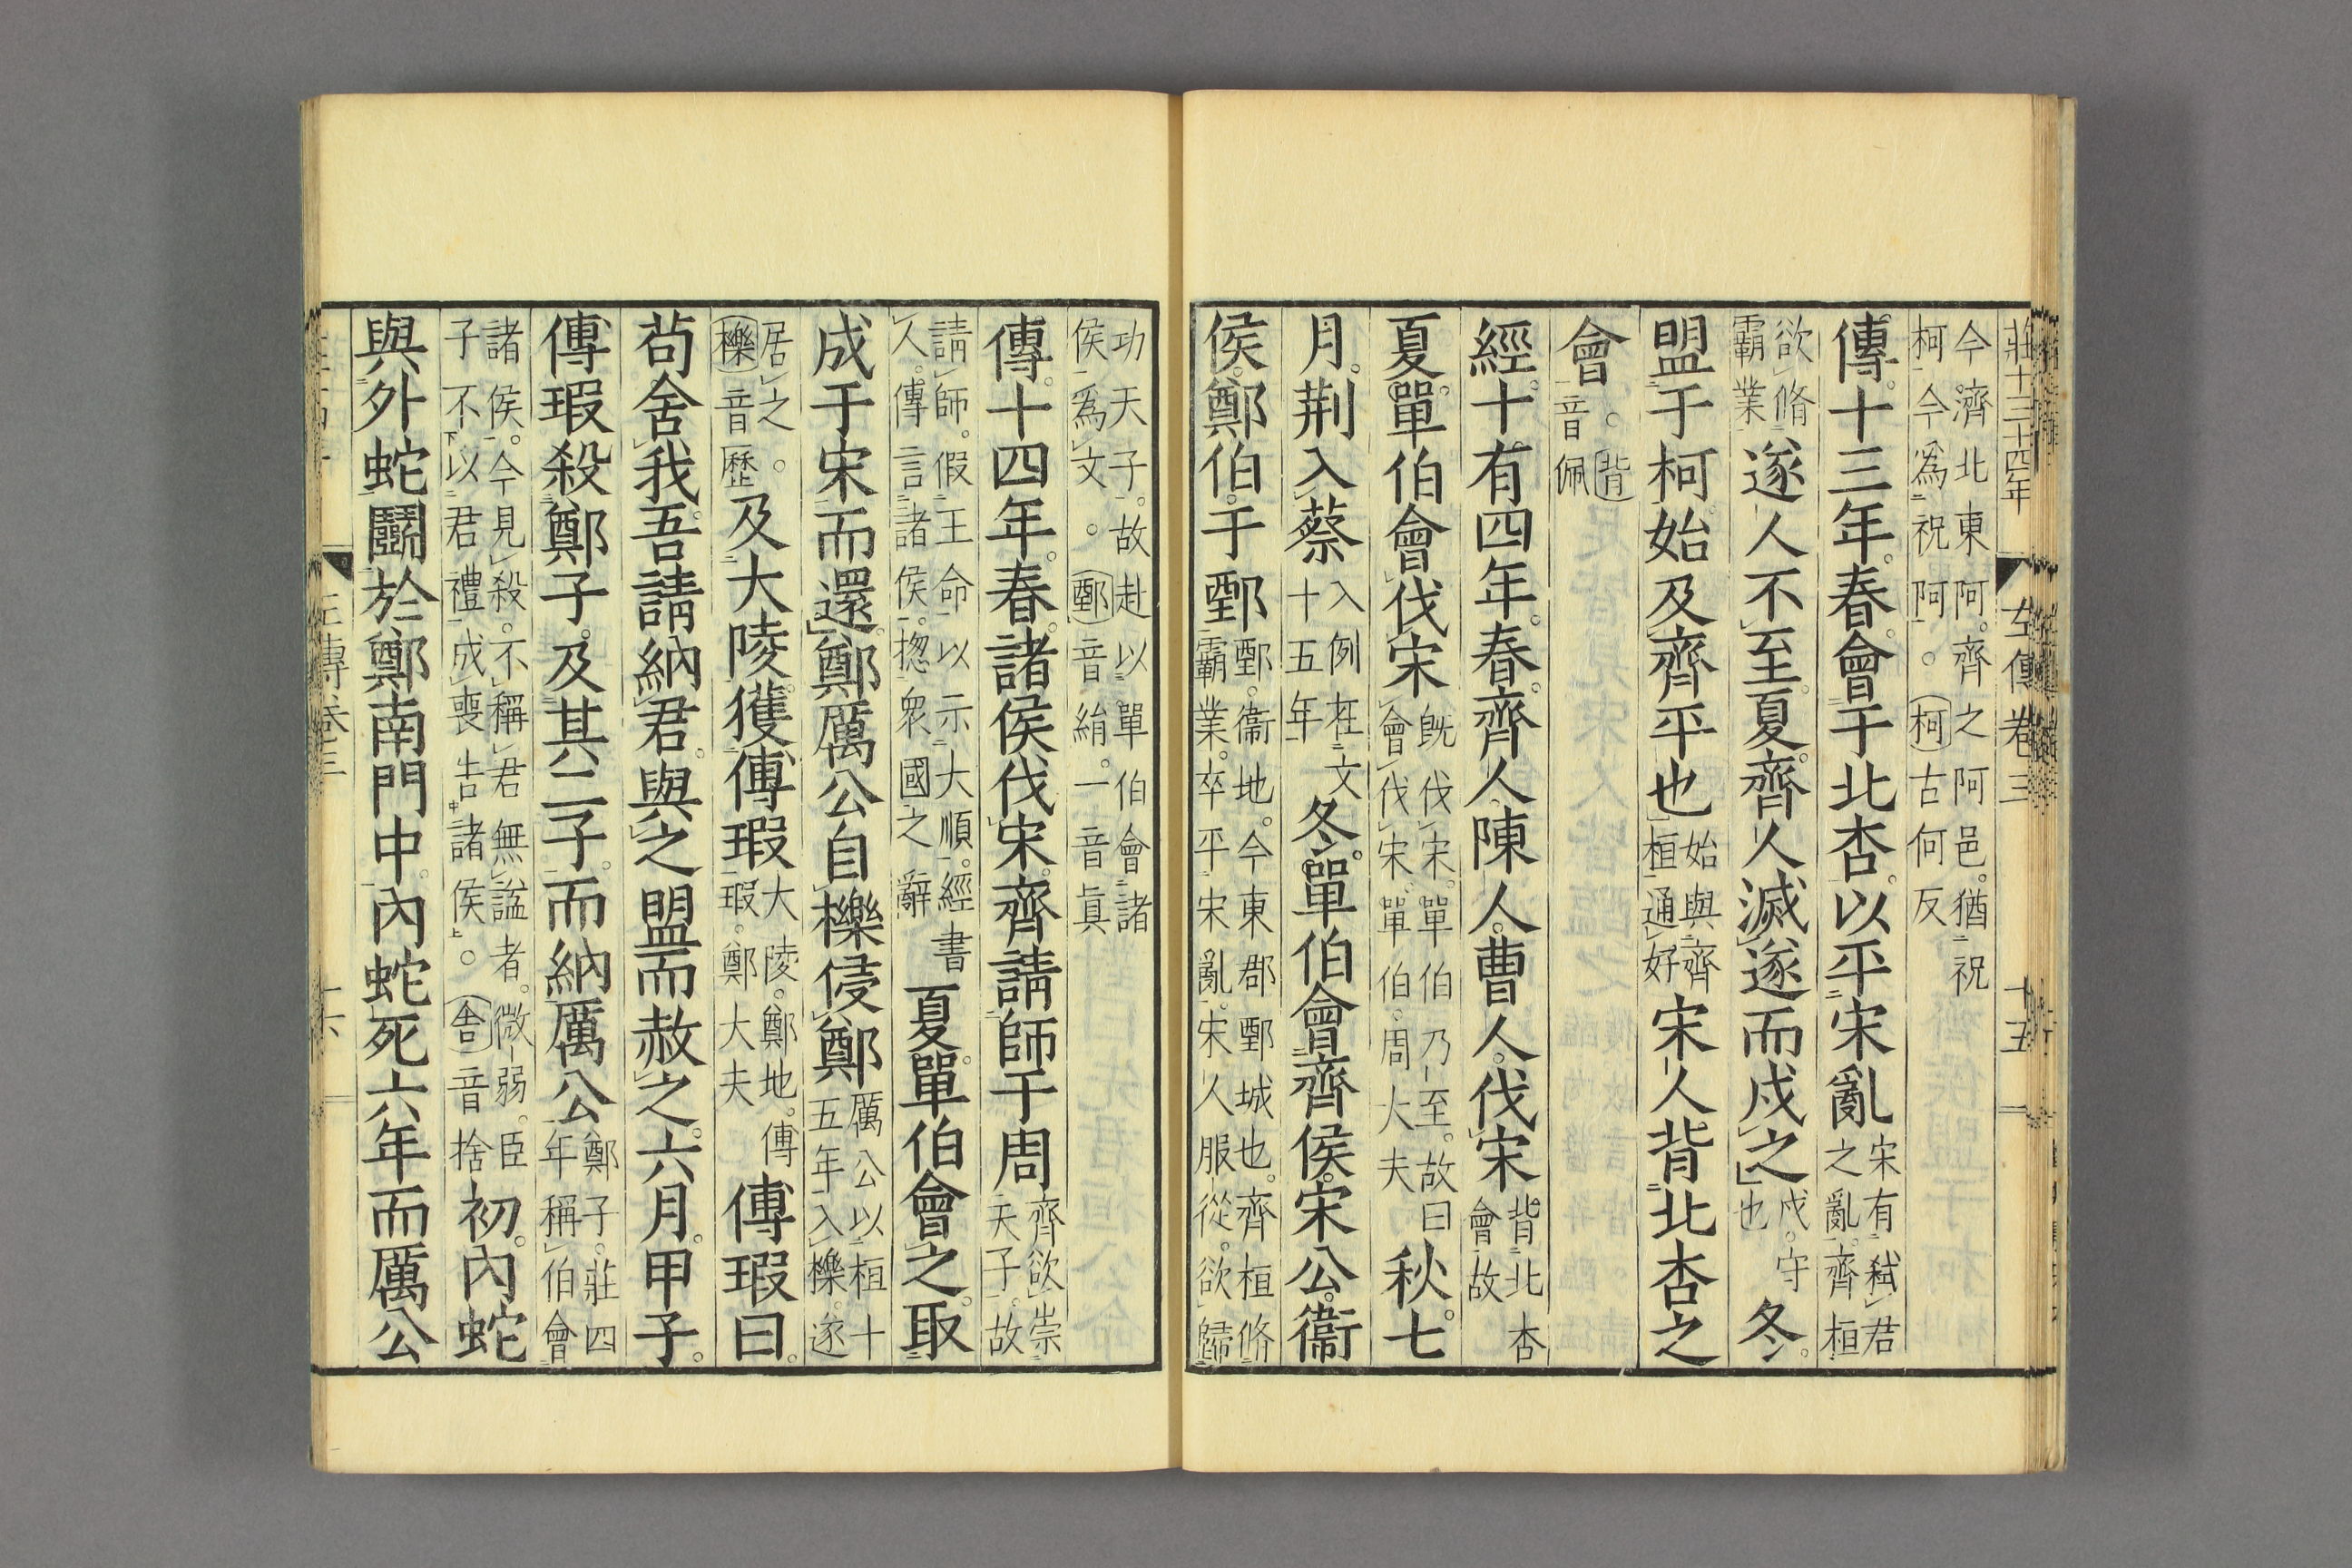 莊十三 十四年 左傳卷三 十五
今濟北東阿。齊之阿邑。猶祝
柯今爲祝阿。柯古何反
傳。十三年。春。會于北杏。以平宋亂宋有弒君
之亂。齊桓
欲脩
霸業遂人不至。夏。齊人滅遂而戍之戍。守
也冬。
盟于柯。始及齊平也始與齊
桓通好宋人背北杏之
會。背
音佩
經。十有四年。春。齊人。陳人。曹人。伐宋背北杏
會故
夏。單伯會伐宋既伐宋。單伯乃至。故曰
會伐宋。單伯。周大夫秋。七
月。荆入蔡入例在文
十五年冬。單伯會齊侯。宋公。衞
侯。鄭伯。于鄄鄄。衞地。今東郡鄄城也。齊桓脩
霸業。卒平宋亂。宋人服從。欲歸
功天子。故赴以單伯會諸
侯爲文。鄄音絹。一音眞
傳。十四年。春。諸侯伐宋。齊請師于周齊欲崇
天子。故
請師。假王命以示大順。經書
人。傳言諸侯。揔衆國之辭夏。單伯會之。取
成于宋而還。鄭厲公自櫟侵鄭厲公以桓十
五年入櫟。遂
居之。
櫟音歷及大陵。獲傅瑕大陵。鄭地。傅
瑕。鄭大夫傅瑕曰。
苟舍我。吾請納君。與之盟而赦之。六月。甲子。
傅瑕殺鄭子。及其二子。而納厲公鄭子。莊四
年稱伯會
諸侯。今見殺。不稱君無謚者。微弱。臣
子不以君禮成喪告諸侯。舍音捨初。內蛇
與外蛇鬬於鄭南門中。內蛇死。六年而厲公